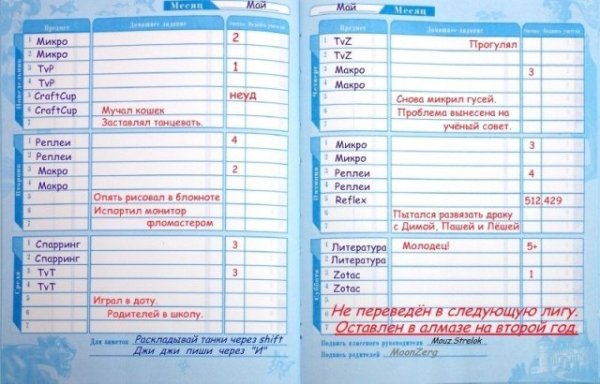 Месяц Май
Предмет Домашнее задание Оценка Подпись учителя
Понедельник
1 Микро 2
2 Микро
3 TvP 1
4 TvP
5 CraftCup неуд
6 CraftCup Мучал кошек
7 Заставлял танцевать.
Вторник
1 Реплеи 4
2 Реплеи
3 Макро 2
4 Макро
5 Опять рисовал в блокноте
6 Испортил монитор
7 фломастером
Среда
1 Спарринг 3
2 Спарринг
3 TvT 3
4 TvT
5 Играл в доту.
6 Родителей в школу.
7
Для заметок Раскладывай танки через shift
Джи джи пиши через "И"
Май Месяц
Предмет Домашнее задание Оценка Подпись учителя
Четверг
1 TvZ Прогулял
2 TvZ
3 Макро 3
4 Макро
5 Снова микрил гусей.
6 Проблема вынесена на
7 учёный совет.
Пятница
1 Микро 3
2 Микро
3 Реплеи 4
4 Реплеи
5 Reflex 512,429
6 Пытался развязать драку
7 с Димой, Пашей и Лёшей
Суббота
1 Литература Молодец! 5+
2 Литература
3 Zotac 1
4 Zotac
5
6 Не переведён в следующую лигу.
7 Оставлен в алмазе на второй год.
Подпись классного руководителя Mouz Strelok
Подпись родителей MoonZerg